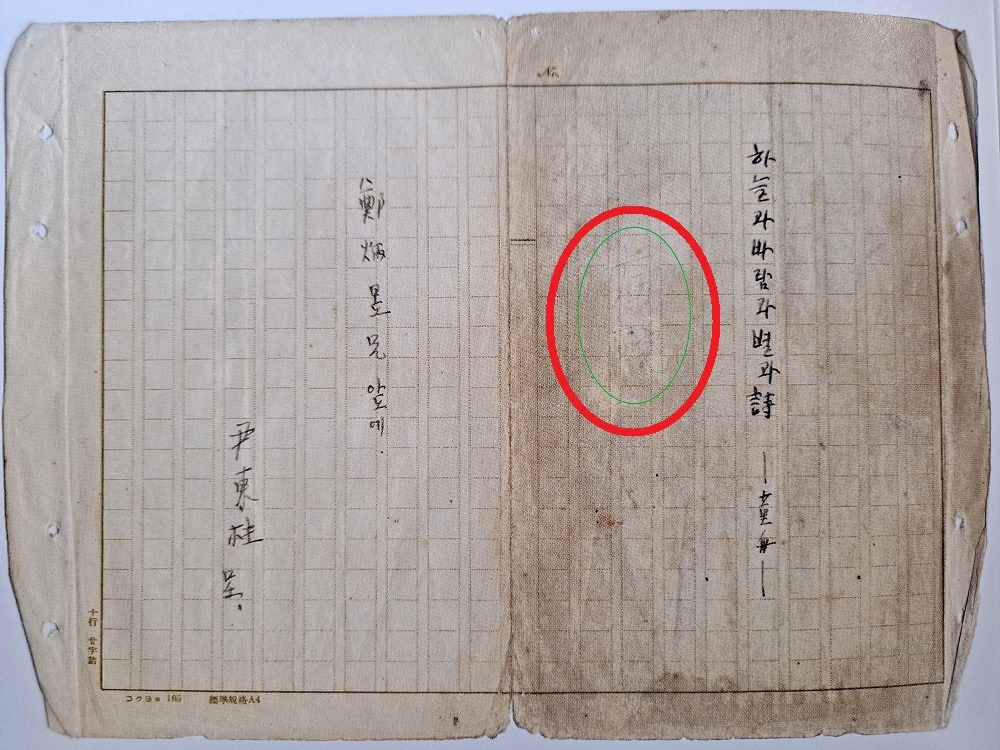 No.
하늘과바람과별과詩 — 童舟 —
鄭炳昱兄 앞에.
尹東柱 呈.
十行 廿字詰
コクヨ 165 標準規格A4